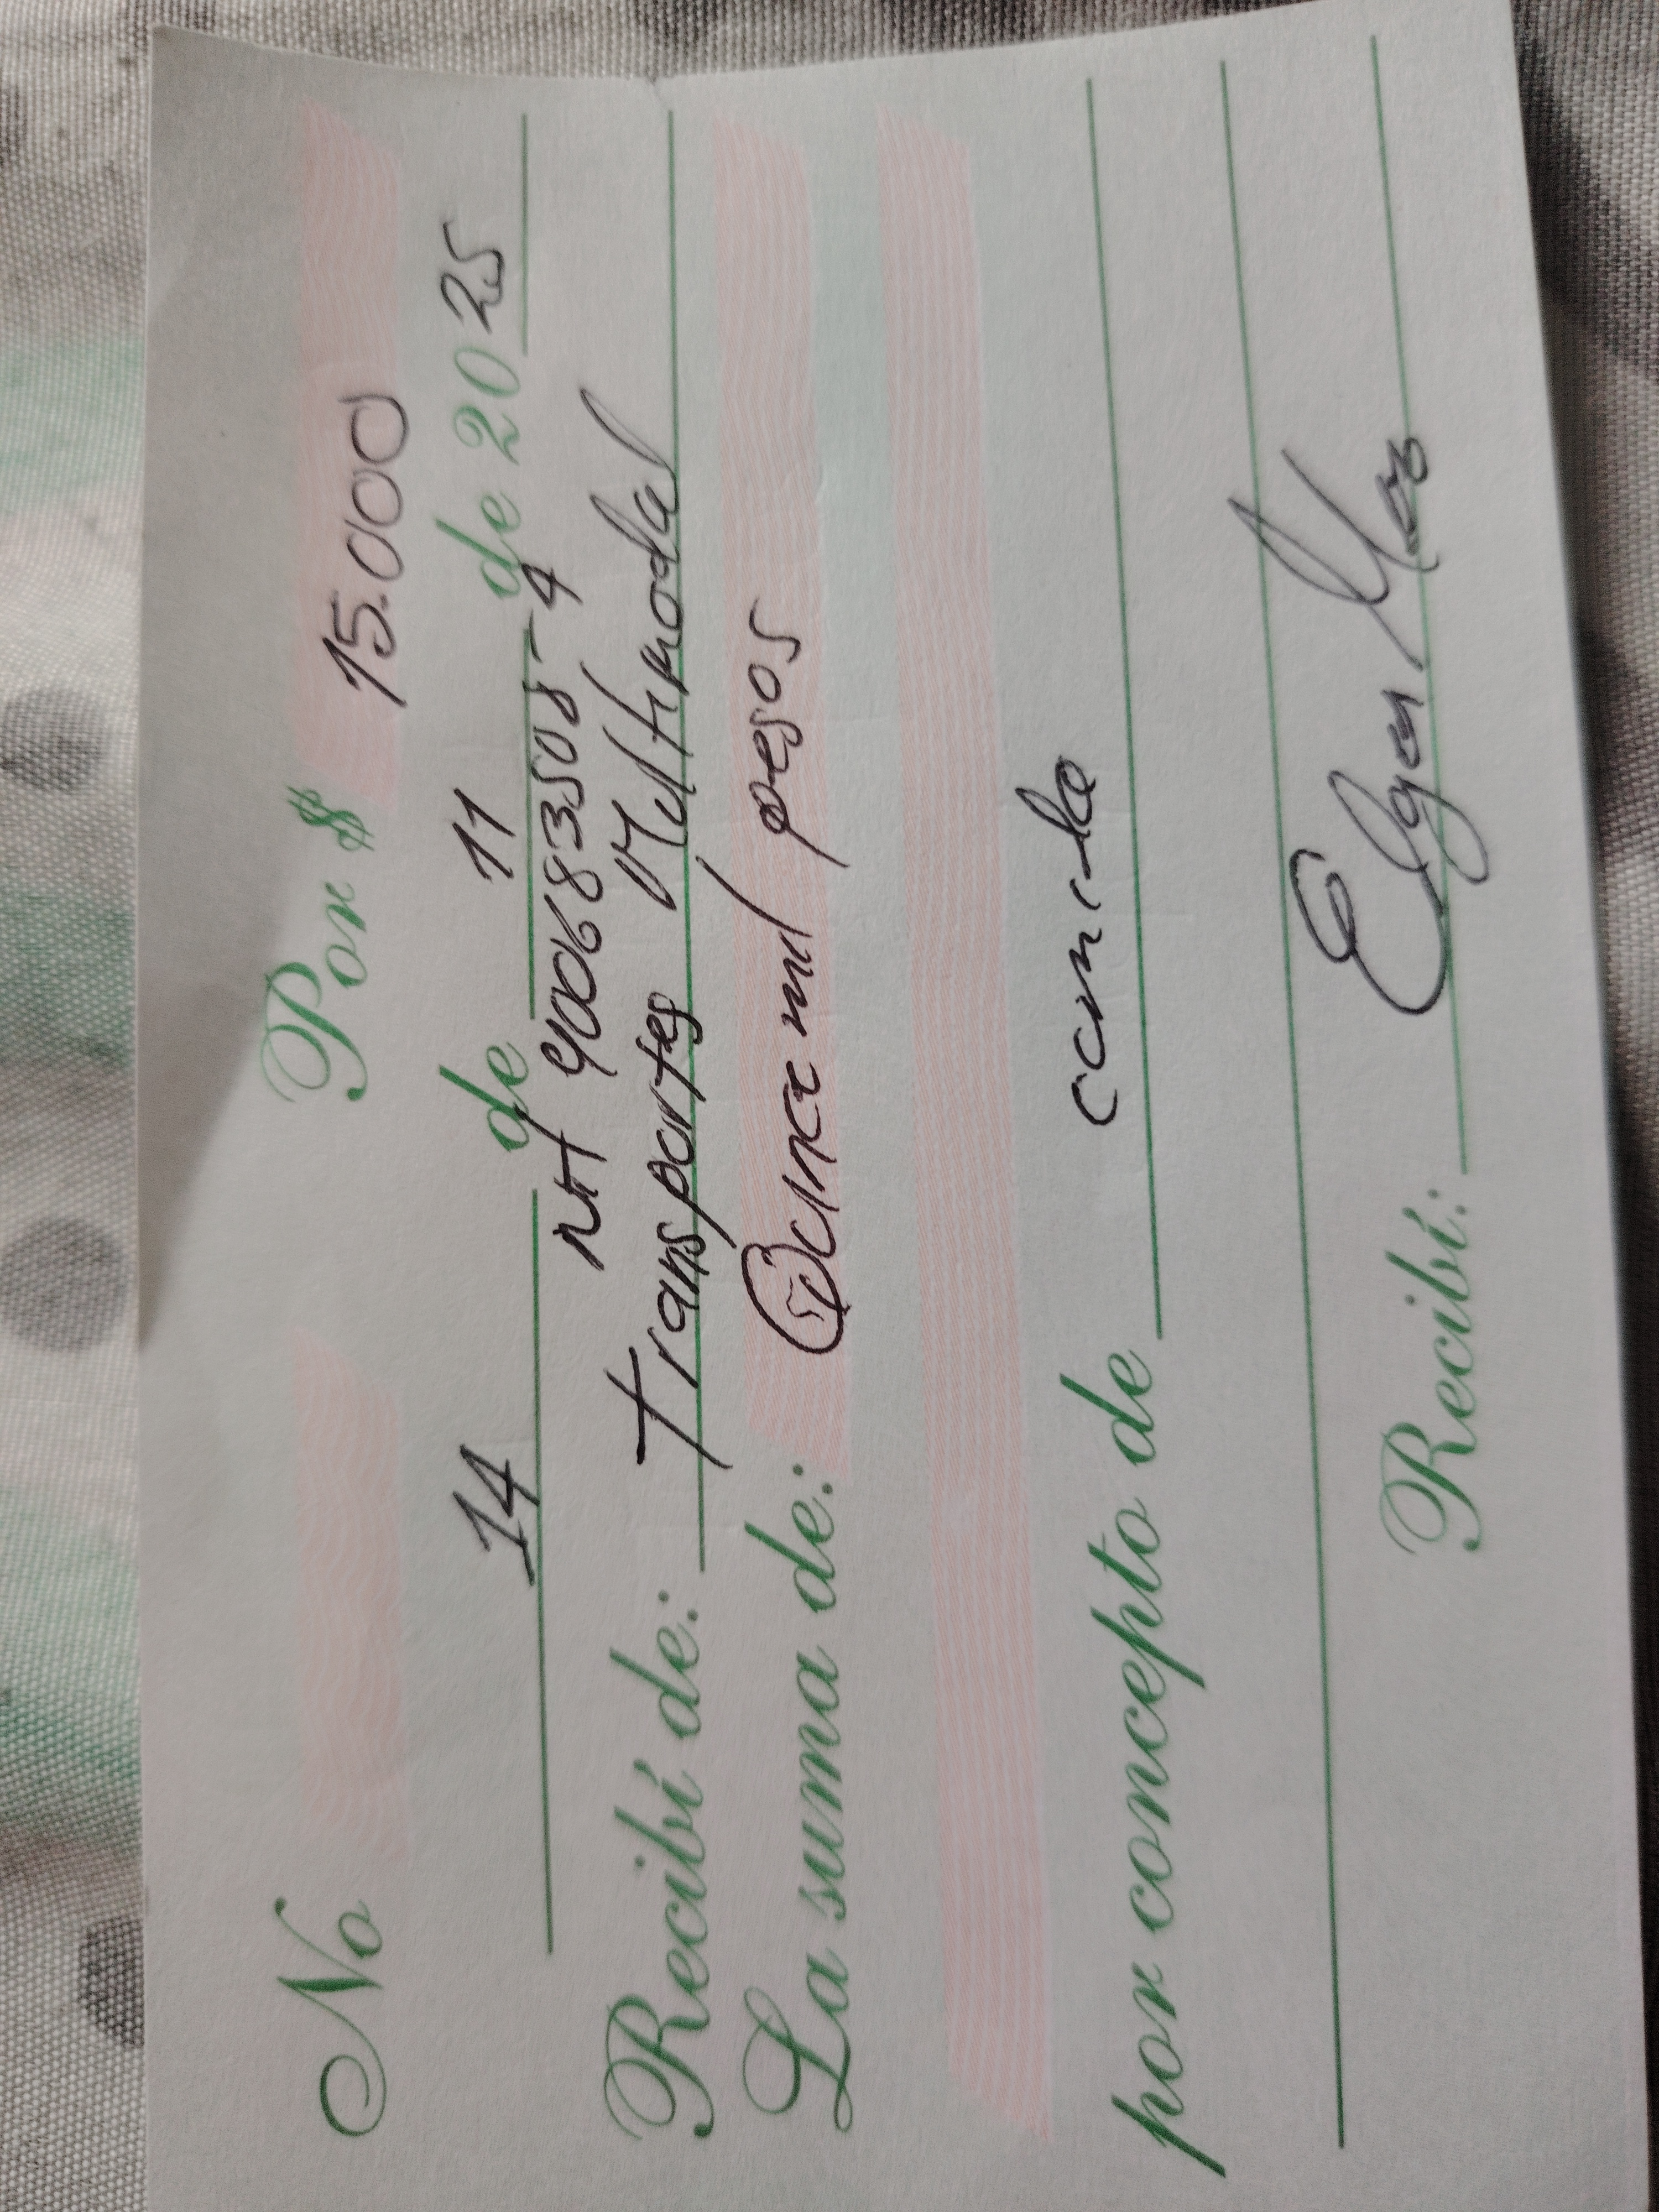 No Por $ 15.000
14 de 11 de 2025
nit 900683508-4
Recibí de: Transportes Multimodal
La suma de: Quince mil pesos
por concepto de comida
Recibí: Elga